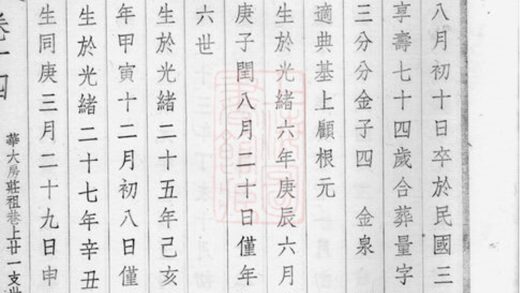 八月初十日卒於民國三
享壽七十四歲合葬量字
三分分金子四　金泉
適典基上顧根元
生於光緒六年庚辰六月
庚子閏八月二十日僅年
六世
生於光緒二十五年己亥
年甲寅十二月初八日僅
生於光緒二十七年辛丑
生同庚三月二十九日申
卷十四
華大房莊祖巷上廿一支世